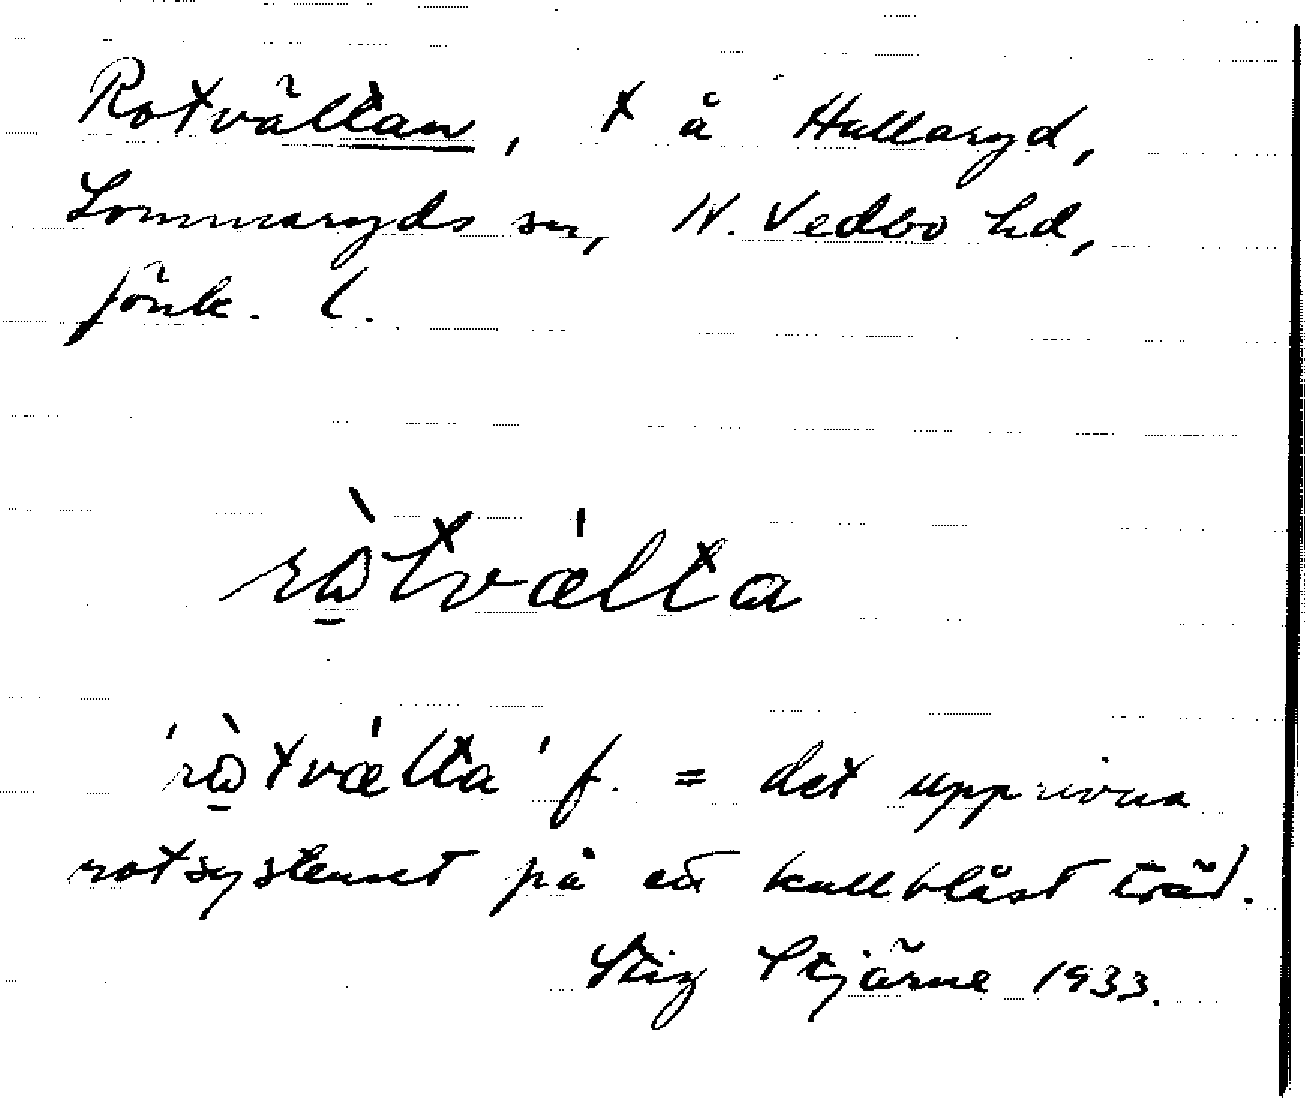 Rotvältan, t å Hullaryd,
Lommaryds sn, N. Vedbo hd,
Jönk. l.
rὼ̱tvǽlta
'rὼ̱tvǽlta' f. = det upprivna
rotsystemet på ett kullblåst träd.
Stig Stjärne 1933.